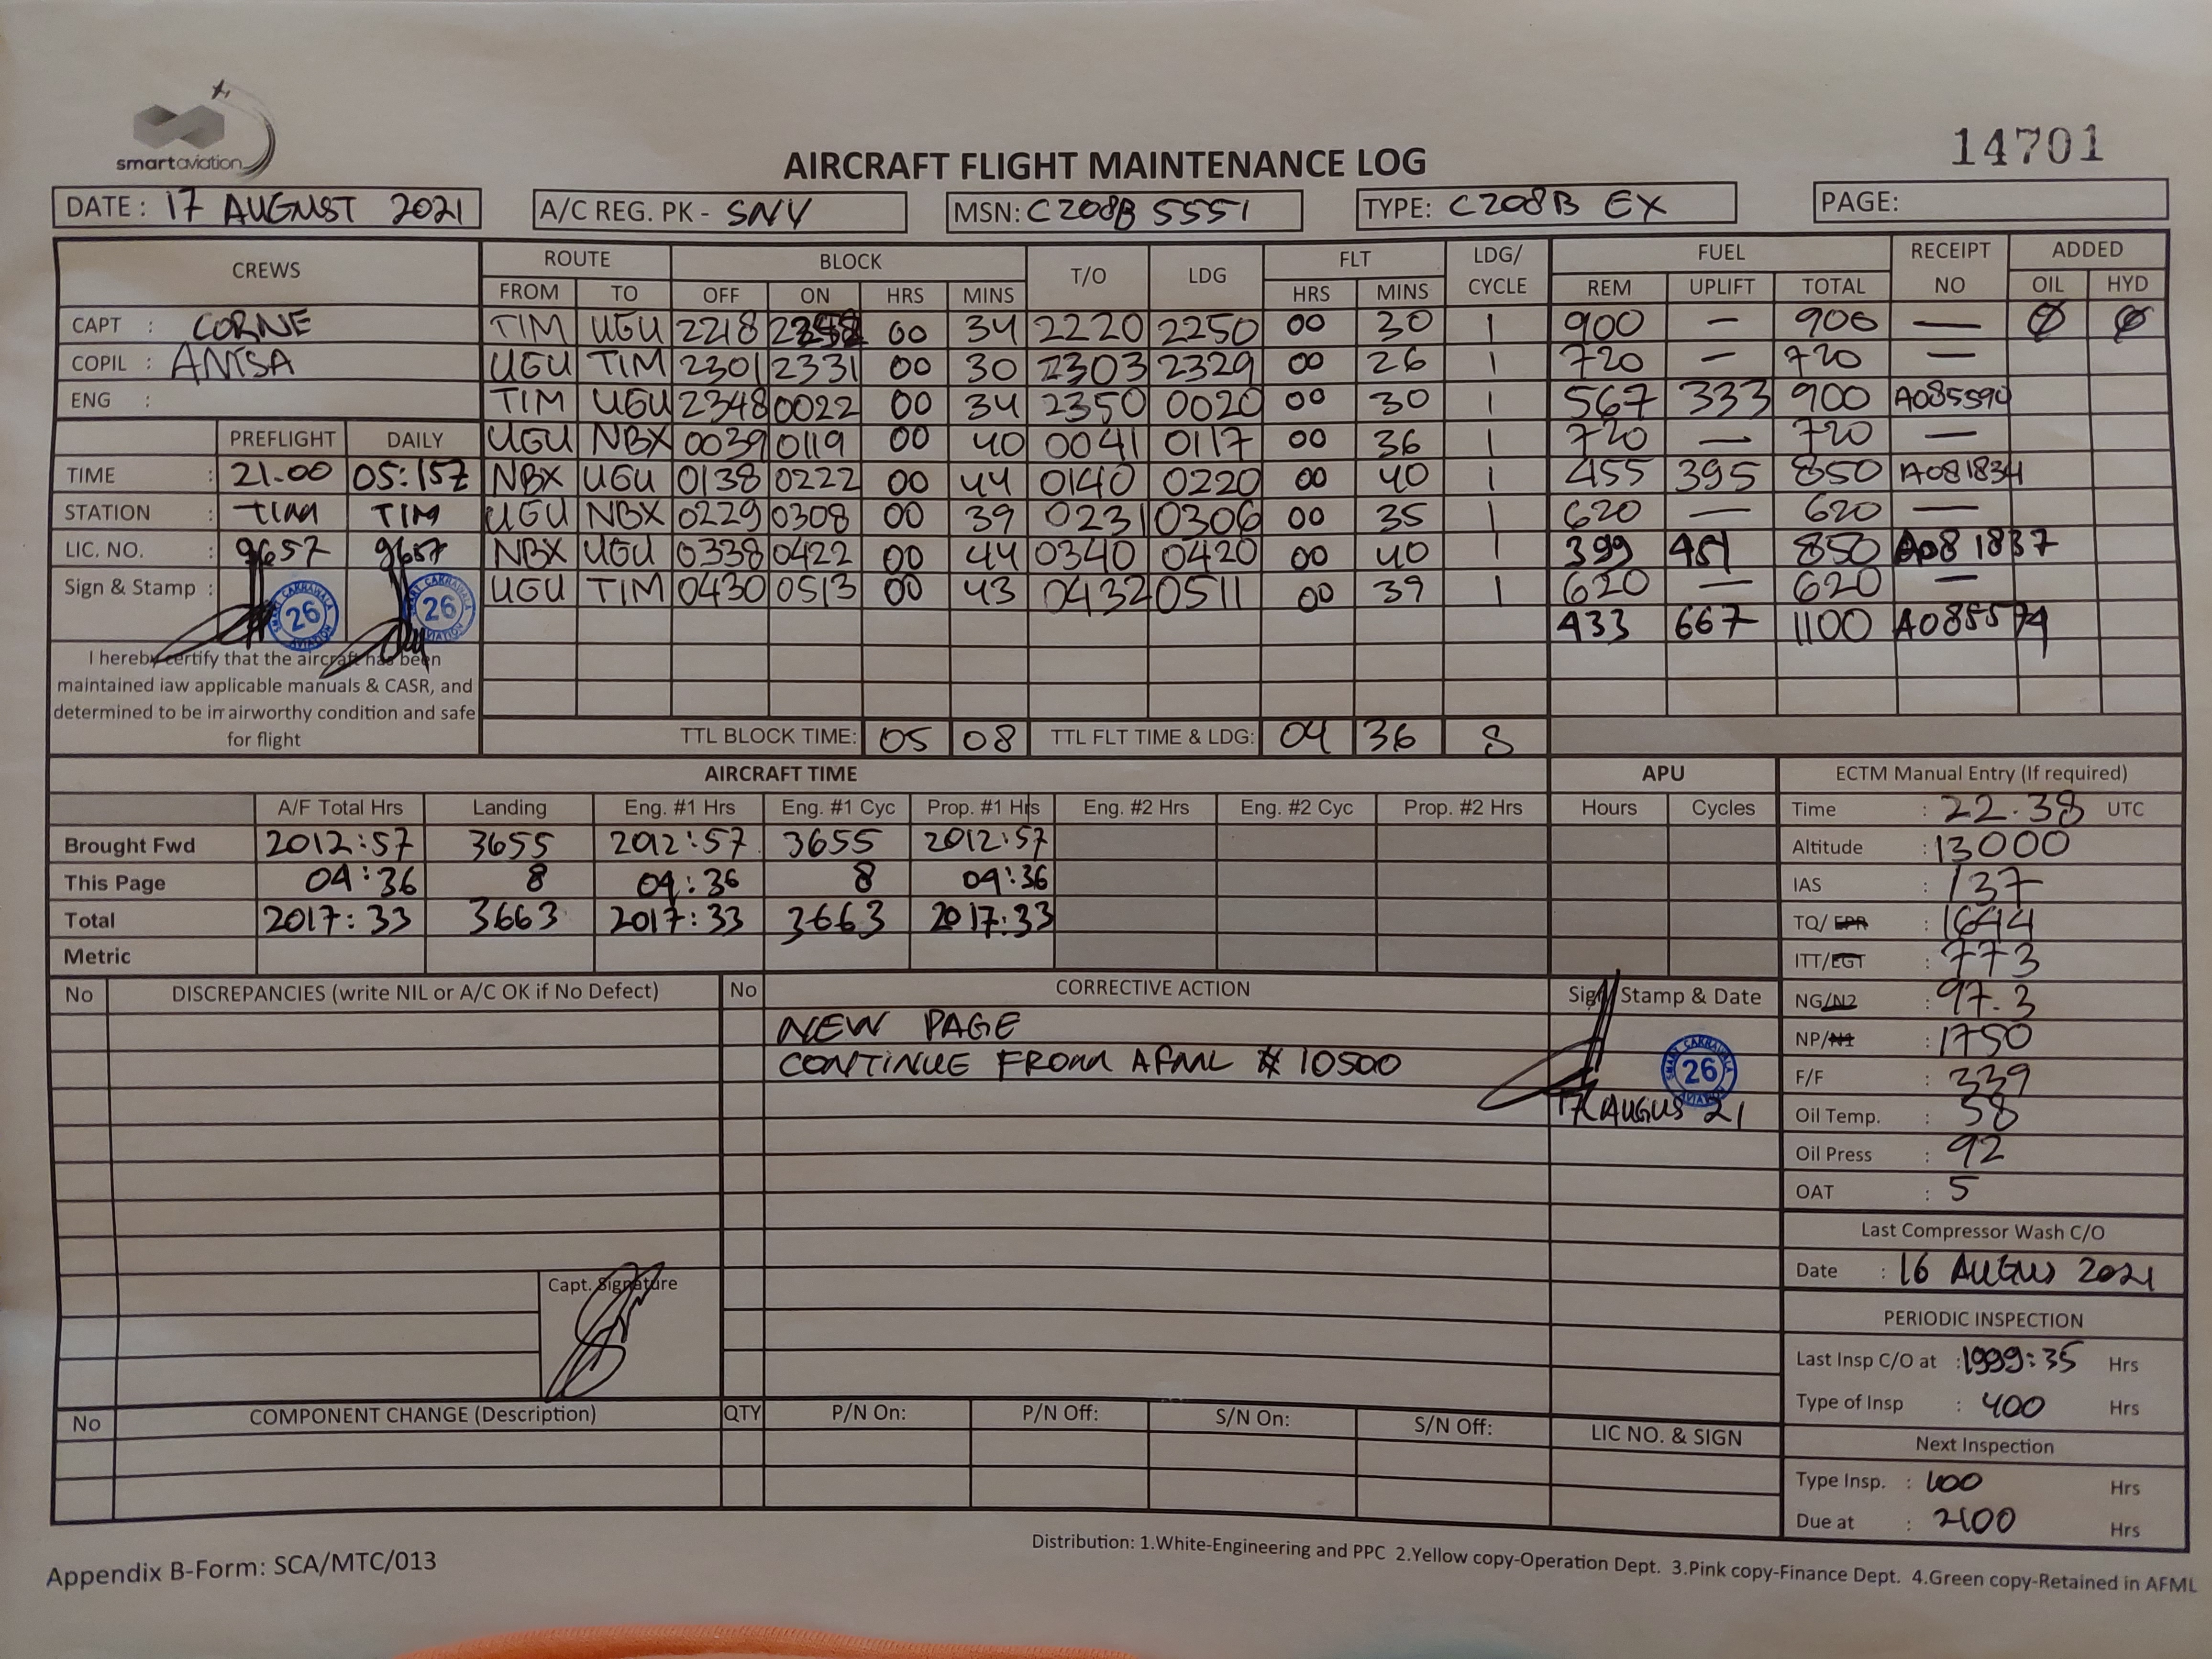 smartaviation
14701
AIRCRAFT FLIGHT MAINTENANCE LOG
DATE: 17 AUGUST 2021 A/C REG. PK - SNY MSN: C208B 5551 TYPE: C208B EX PAGE:
CREWS ROUTE BLOCK T/O LDG FLT LDG/ CYCLE FUEL RECEIPT NO ADDED
FROM TO OFF ON HRS MINS HRS MINS REM UPLIFT TOTAL OIL HYD
CAPT : CORNE TIM UGU 2218 00 34 2220 2250 00 30 1 900 — 900 — Ø Ø
COPIL : ANISA UGU TIM 2301 2331 00 30 2303 2329 00 26 1 720 — 720 —
ENG : TIM UGU 2348 0022 00 34 2350 0020 00 30 1 567 333 900
PREFLIGHT DAILY UGU NBX 0039 0119 00 40 0041 0117 00 36 1 720 — 720 —
TIME : 21.00 NBX UGU 0138 0222 00 44 0140 0220 00 40 1 455 395 850 A081834
STATION : TIM TIM UGU NBX 0229 0308 00 39 0231 0306 00 35 1 620 — 620 —
LIC. NO. : 9657 9657 NBX UGU 0338 0422 00 44 0340 0420 00 40 1 399 451 850 A081837
Sign & Stamp : UGU TIM 0430 0513 00 43 0432 0511 00 39 1 620 — 620 —
SMART CAKRAWALA AVIATION 26
SMART CAKRAWALA AVIATION 26
433 667 1100
I hereby certify that the aircraft has been
maintained iaw applicable manuals & CASR, and
determined to be in airworthy condition and safe
for flight
TTL BLOCK TIME: 05 08 TTL FLT TIME & LDG: 04 36 8
AIRCRAFT TIME APU ECTM Manual Entry (If required)
A/F Total Hrs Landing Eng. #1 Hrs Eng. #1 Cyc Prop. #1 Hrs Eng. #2 Hrs Eng. #2 Cyc Prop. #2 Hrs Hours Cycles Time : 22.38 UTC
Brought Fwd 2012:57 3655 2012:57 3655 2012:57 Altitude : 13000
This Page 04:36 8 04:36 8 04:36 IAS : 137
Total 2017:33 3663 2017:33 3663 2017:33 TQ/EPR : 1644
Metric ITT/EGT : 773
No DISCREPANCIES (write NIL or A/C OK if No Defect) No CORRECTIVE ACTION Sign Stamp & Date NG/N2 : 97.3
NEW PAGE NP/N1 : 1750
CONTINUE FROM AFML # 10500 F/F : 339
SMART CAKRAWALA AVIATION 26
17 AUGUS 21 Oil Temp. : 58
Oil Press : 92
OAT : 5
Last Compressor Wash C/O
Capt. Signature Date : 16 AUGUS 2021
PERIODIC INSPECTION
Last Insp C/O at : 1999:35 Hrs
Type of Insp : 400 Hrs
No COMPONENT CHANGE (Description) QTY P/N On: P/N Off: S/N On: S/N Off: LIC NO. & SIGN
Next Inspection
Type Insp. : 100 Hrs
Due at : 2100 Hrs
Distribution: 1.White-Engineering and PPC 2.Yellow copy-Operation Dept. 3.Pink copy-Finance Dept. 4.Green copy-Retained in AFML
Appendix B-Form: SCA/MTC/013